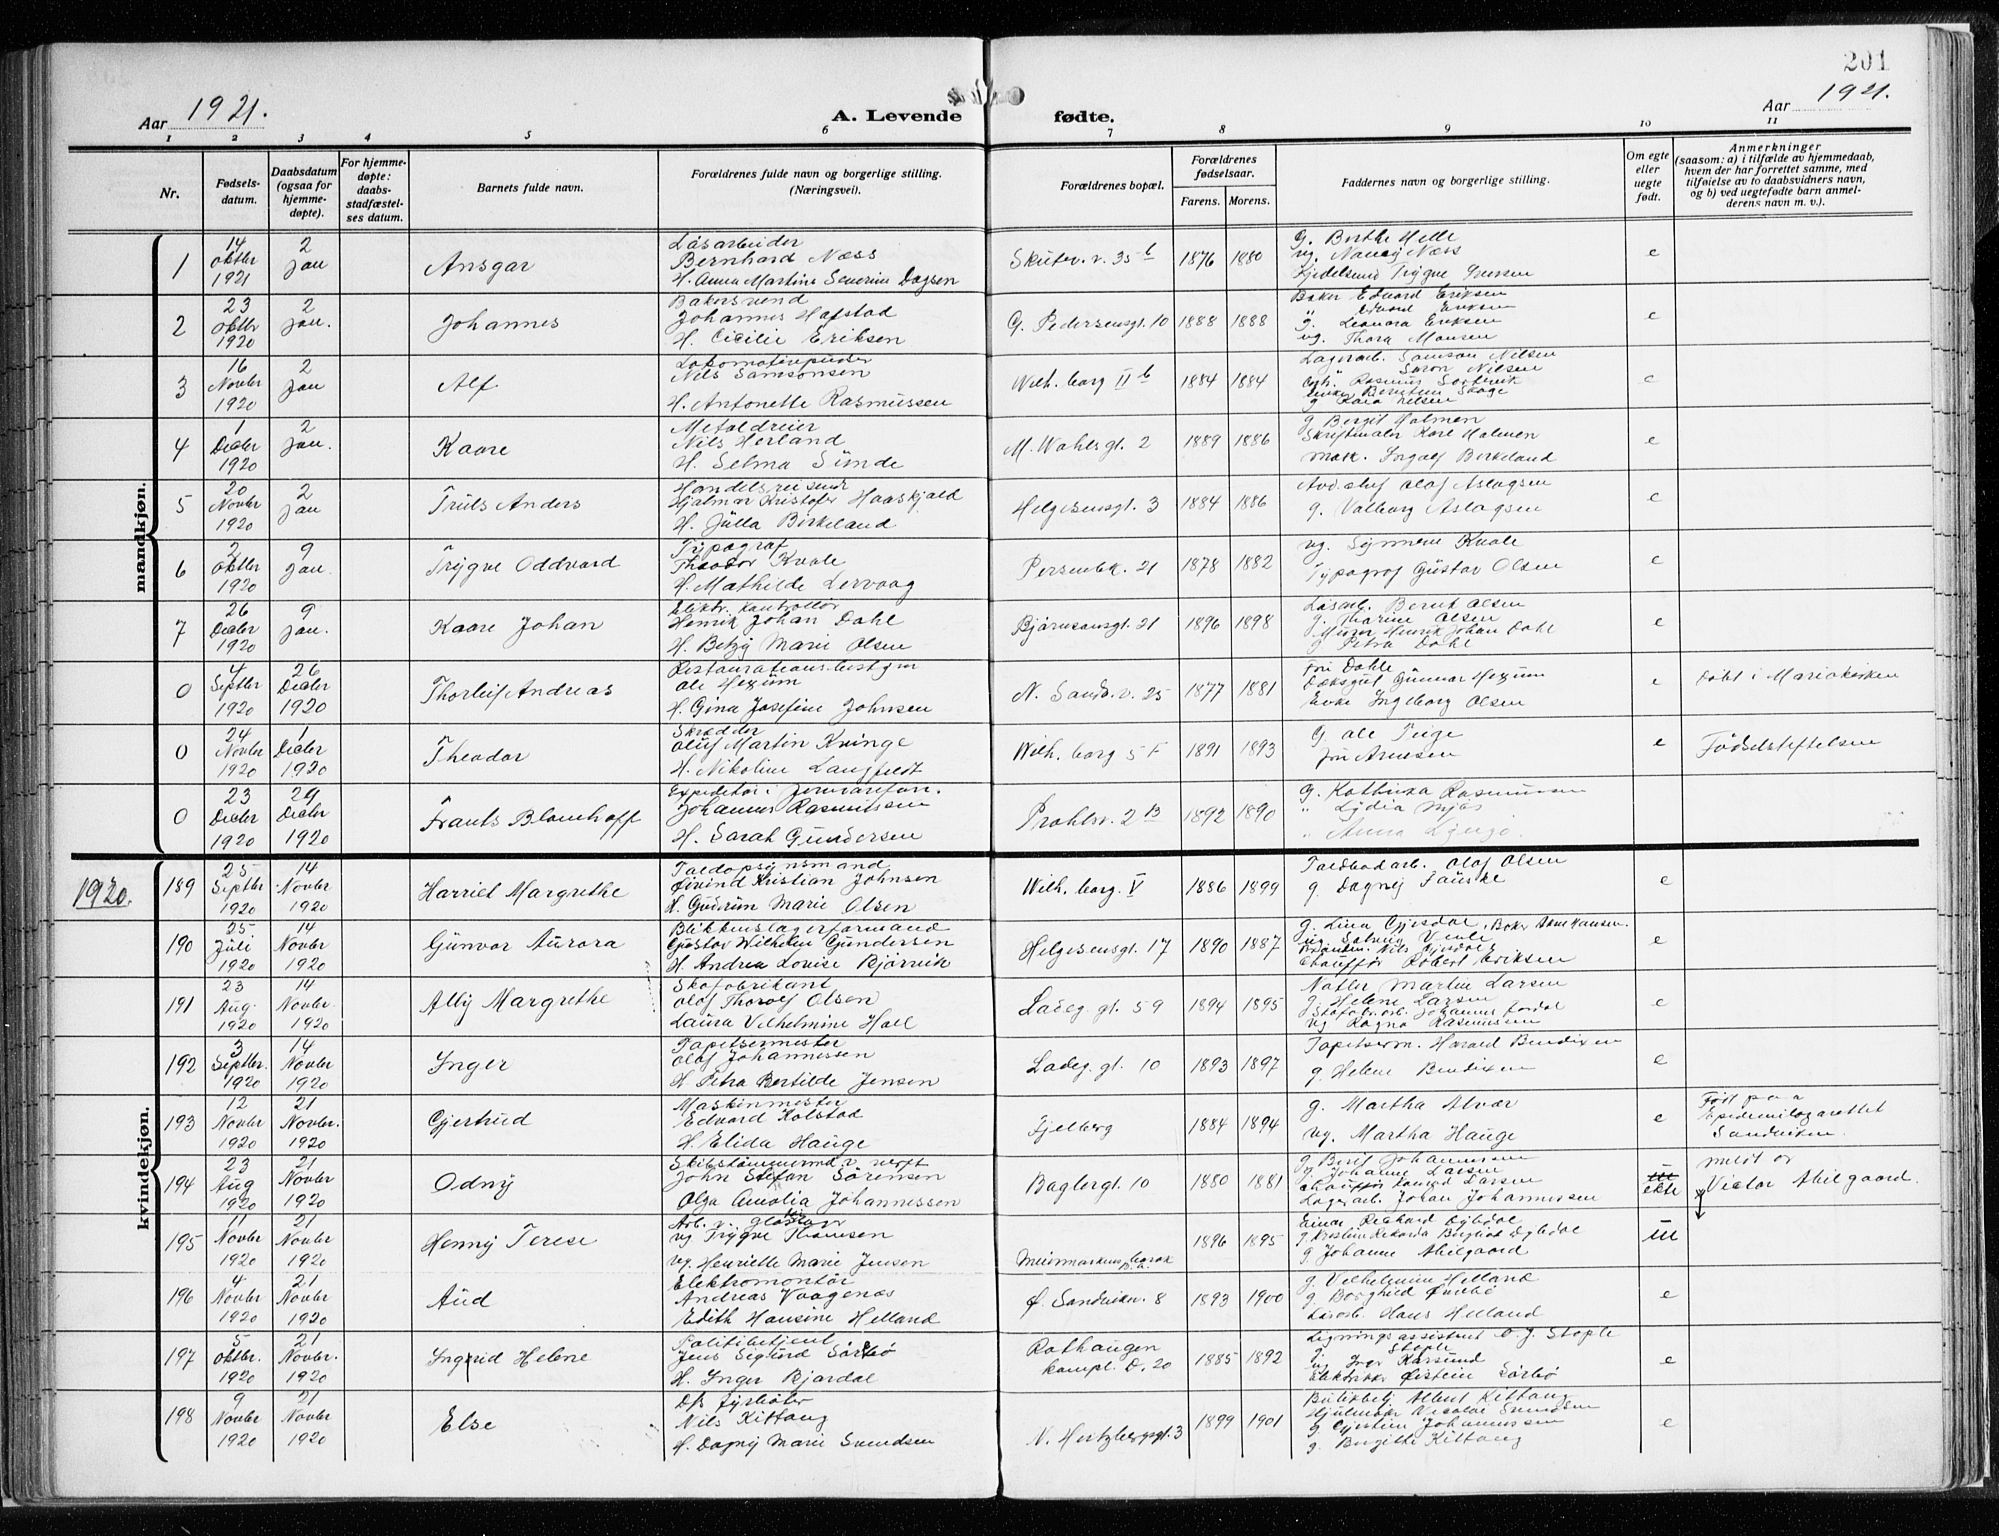 201
Aar 1921.
A. Levende fødte.
Aar 1921.
1 2 3 4 5 6 7 8 9 10 11
Nr.
Fødsels-
datum.
Daabsdatum
(ogsaa for
hjemme-
døpte).
For hjemme-
døpte:
daabs-
stadfæstel-
ses datum.
Barnets fulde navn.
Forældrenes fulde navn og borgerlige stilling.
(Næringsvei).
Forældrenes bopæl.
Forældrenes
fødselsaar.
Farens. Morens.
Faddernes navn og borgerlige stilling.
Om egte
eller
uegte
født.
Anmerkninger
(saasom: a) i tilfælde av hjemmedaab,
hvem der har forrettet samme, med
tilføielse av to daabsvidners navn,
og b) ved uegtefødte barn anmel-
derens navn m. v.).
mandkjøn.
1
14
oktbr
1921
2
Jan
Ansgar
Løsarbeider
Bernhard Næss
H. Anna Martine Severine Dagsen
Skutev. v. 35 b
1876 1880
g. Berthe Helle
vg. Nancy Næss
Trygve
e
2
23
oktbr
1920
2
Jan.
Johannes
Bakersvend
Johannes Hafstad
H. Cicilie Eriksen
G. Pedersensgt. 10
1888 1888
Baker Edvard Eriksen
" Edvard Eriksen
g. Leonora Eriksen
vg. Thora Monsen
e
3
16
Novbr
1920
2
Jan
Alf
Lokomotivpudser
Nils Samsonsen
H. Antonette Rasmussen
Wilh. borg II b
1884 1884
Lagerarb. Samson Nilsen
" Nilsen
Rasmus
Skage
e
4
1
Decbr
1920
2
Jan.
Kaare
Metaldreier
Nils Herland
H. Selma Sunde
M. Wahlsgt. 2
1889 1886
g Bergit Holmen
Skriftmaler Kare Holmen
Mask. Birkeland
e
5
20
Novbr
1920
2
Jan
Truls Anders
Handelsreisende
Hjalmar Kristofer Haaskjold
H. Julla Birkeland
Helgesensgt. 3
1884 1886
Avd. chef Olaf Aslagsen
g. Valborg Aslagsen
e
6
2
oktbr
1920
9
Jan.
Trygve Oddvard
Typograf
Theodor Kvale
H. Mathilde Lervaag
Persenbk. 21
1878 1882
vg. Synneve Kvale
Typograf Gustav Olsen
e
7
26
Decbr
1920
9
Jan.
Kaare Johan
Elektr. kontrollør
Henrik Johan Dahl
H. Betzy Marie Olsen
Bjørnsonsgt. 21
1896 1898
Løsarb. Bernt Olsen
g. Thorine Olsen
Murer Henrik Johan Dahl
g. Petra Dahl
e
0
4
Septbr
1920
26
Decbr
1920
Thorleif Andreas
Restaurationsbestyrer
Ole Hexum
H. Gina Josefine Johnsen
N. Sandv. v. 25
1877 1881
Fru Dahle
Dæksgut Gunnar Hexum
Enke Ingeborg Olsen
e
Døbt i Mariakirken
0
24
Novbr
1920
1
Decbr
1920
Theodor
Skrædder
Oluf Martin Kvinge
H. Nikoline Langfeldt
Wilh. borg 5 F
1891 1893
g. Ole Tuge
Frk Arnesen
e
Fødselstiftelsen
0
23
Decbr
1920
29
Decbr
1920
Frants Blomhoff
Expeditør i
Johannes Rasmussen
H. Sarah Gundersen
Prahlsv. 2 B
1892 1890
g. Kathinka Rasmussen
" Lydia Mjøs
" Anna
kvindekjøn.
1920.
189
25
Septbr
1920
14
Novbr
1920
Harriet Margrethe
Toldopsynsmand
Øivind Kristian Johnsen
H. Gudrun Marie Olsen
Wilh. borg. V
1886 1899
Toldbodarb. Olaf Olsen
g. Dagny Fauske
e
190
25
Juli
1920
14
Novbr
1920
Gunvor Aurora
Blikkenslagerformand
Gustav Wilhelm Gundersen
H. Andrea Lovise Bjørvik
Helgesensgt. 17
1890 1887
g. Lina Gjesdal, Baker Arne Hansen.
ug. Solveig
Nils Gjesdal
Chauffør Robert Eriksen
e
191
23
Aug.
1920
14
Novbr.
1920
Ally Margrethe
Skofabrikant
Olaf Thorolf Olsen
Laura Vilhelmine Hall
Ladeg. gt. 59
1894 1895
Natler Martin Larsen
g. Helene Larsen
Skofabr. arb. Johannes
vg Ragna Rasmussen
e
192
3
Septbr.
1920
14
Novbr
1920
Inger
Tapetsermester
Olaf Johannessen
H. Petra Bertilde Jensen
Ladeg. gt. 10
1893 1897
Tapetserm. Harald Bendixen
g. Helene Bendixen
e
193
12
Novbr
1920
21
Novbr.
1920
Gjertrud
Maskinmester
Edvard Kolstad
H. Elida Hauge
Fjelberg
1884 1894
g. Martha Alvær
vg. Martha Hauge
e
Født paa
Epidemilazarettet
Sandviken.
194
23
Aug
1920
21
Novbr
1920
Odny
Skibstømmermd v. verft
John Stefan Sørensen
Olga Amalia Johannessen
Baglergt. 10
1880 1881
g. Berit Johannessen
g Johanne Larsen
Chauffør Larsen
Lagerarb. Johan Johannessen
ekte
meldt av
Victor Abilgaard.
195
11
Novbr
1920
21
Novbr
1920
Henny Terese
Arb. v.
vg Trygve Thomsen
vg. Henriette Marie Jensen
Meiermarkens barak
1896 1895
Einar Richard Dybdal
g. Kristine Rikarda Bergliot Dybdal
g. Johanne Abilgaard
u
196
4
Novbr
1920
21
Novbr
1920
Aud
Elektromontør
Andreas Vaagenæs
Edith Hansine Helland
Ø. Sandvikv. 8
1893 1900
g. Vilhelmine Helland
g. Borghild
Løsarb. Hans Helland
e
197
5
Oktbr.
1920
21
Novbr.
1920
Ingrid Helene
Politibetjent
Jens Sigurd Sørbø
H. Inger Bjordal
Rothaugen
kompl. D, 20
1885 1892
Ligningsassistent O. J. Stople
g. " Stople
vg Iver Karsund
Elektriker Øistein Sørbø
e
198
9
Novbr
1920
21
Novbr
1920
Else
Ds fyrbøter
Nils Kittang
H. Dagny Marie Svendsen
N. Hertzbergsgt. 3
1899 1901
Albert Kittang
Svendsen
g Johannessen
g. Birgitte Kittang
e